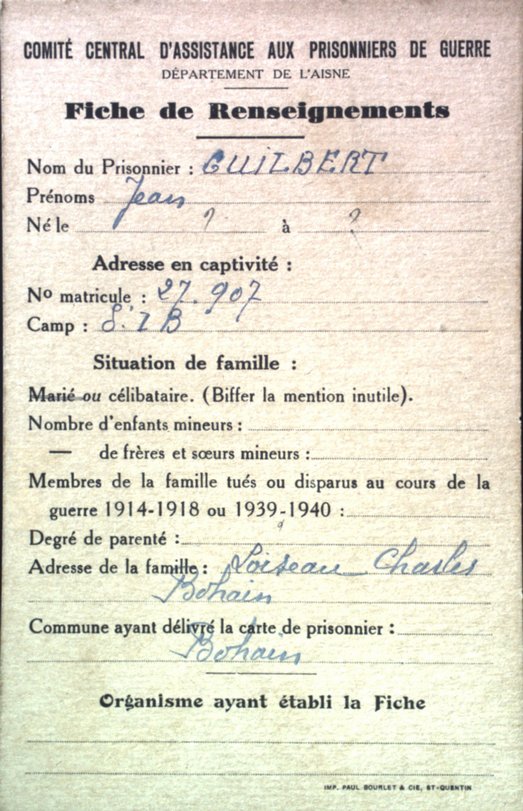 COMITÉ CENTRAL D'ASSISTANCE AUX PRISONNIERS DE GUERRE
DÉPARTEMENT DE L'AISNE
Fiche de Renseignements
Nom du Prisonnier : GUILBERT
Prénoms Jean
Né le ? à ?
Adresse en captivité :
No matricule : 27.907
Camp : S. I B
Situation de famille :
Marié ou célibataire. (Biffer la mention inutile).
Nombre d'enfants mineurs :
— de frères et sœurs mineurs :
Membres de la famille tués ou disparus au cours de la
guerre 1914-1918 ou 1939-1940 :
Degré de parenté :
Adresse de la famille : Loiseau Charles
Bohain
Commune ayant délivré la carte de prisonnier :
Bohain
Organisme ayant établi la Fiche
IMP. PAUL BOURLET & CIE, ST-QUENTIN